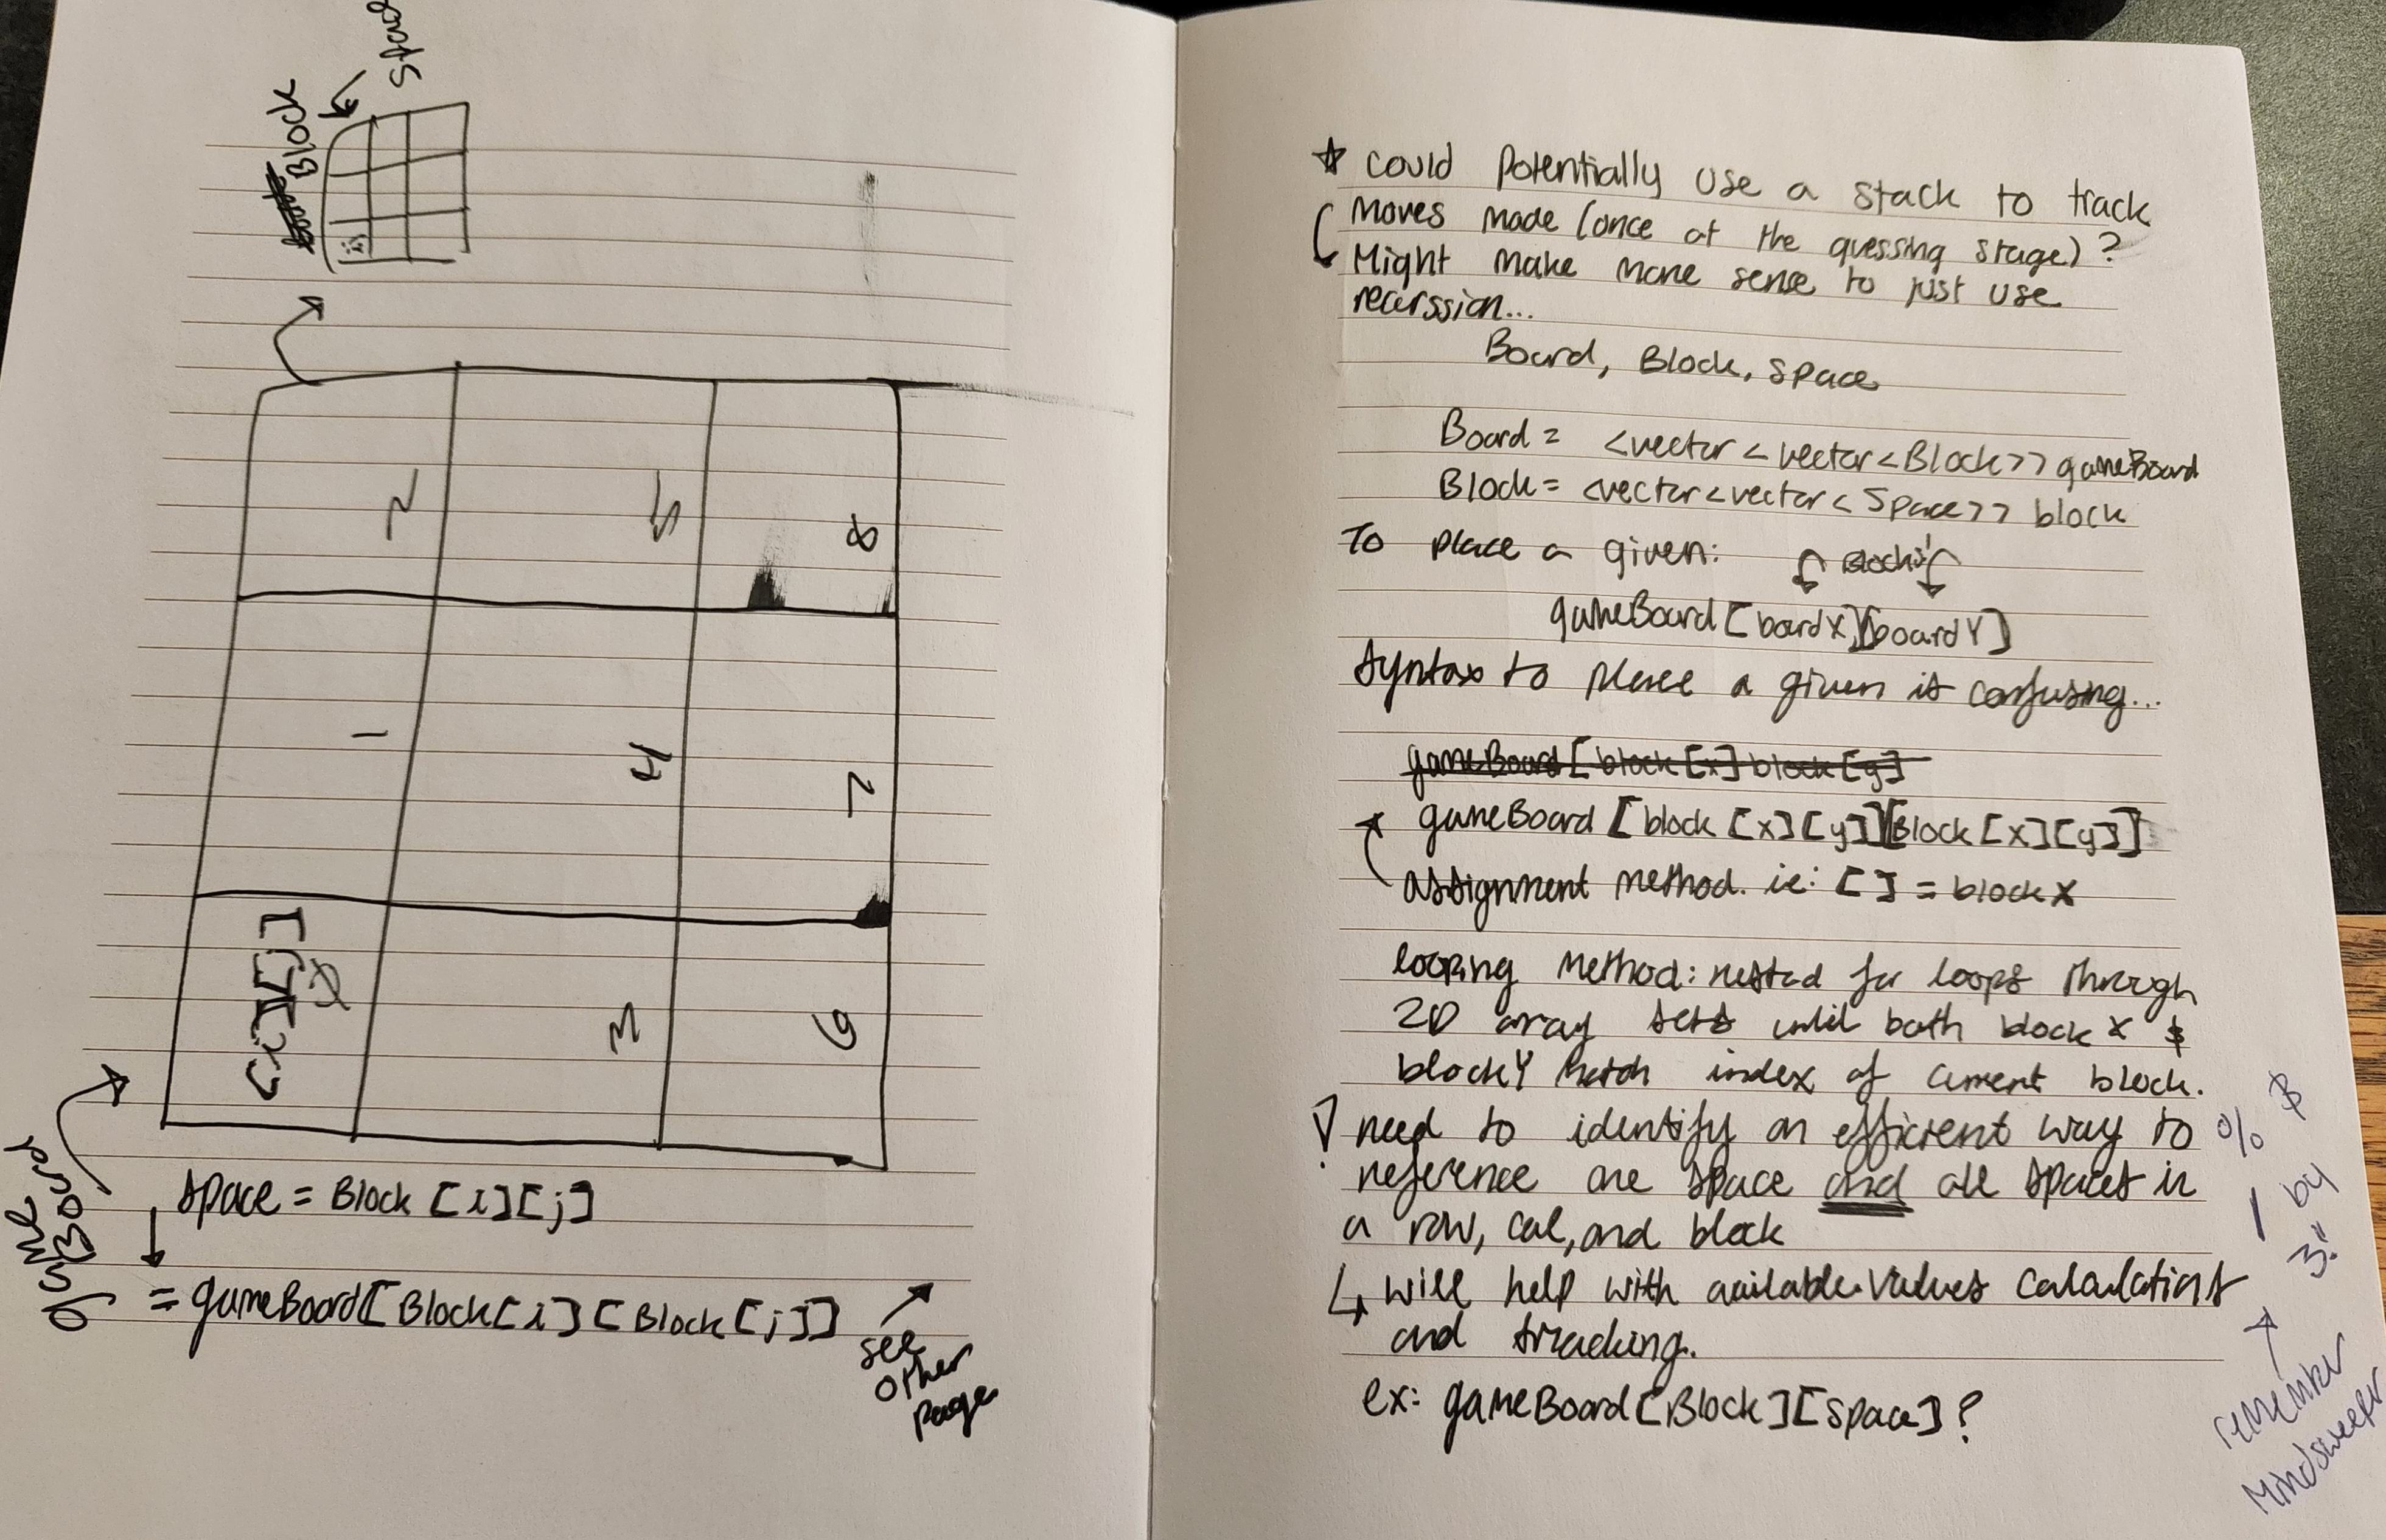 Block
Space
i,j
2
5
8
1
4
7
[i][j]
0
3
6
game
Board
space = Block [i][j]
= gameBoard[Block[i][Block[j]]
see
other
page
☆ could potentially use a stack to track
moves made (once at the guessing stage)?
Might make more sense to just use
recurssion...
Board, Block, space
Board = <vector<vector<Block>> gameBoard
Block = <vector<vector<Space>> block
To place a given:
Blocks
gameBoard[boardX][boardY]
Syntax to place a given is confusing...
gameBoard[block[x] block[y]
gameBoard [block [x][y]][Block[x][y]]
assignment method. ie: [ ] = block X
looping method: nested for loops through
2D array sets until both block X &
blockY match index of current block.
need to identify an efficient way to
reference one space and all spaces in
a row, col, and block
will help with available.values calculations
and tracking.
ex: gameBoard[Block][Space]?
% $
/ by
3!!
remember
Mindsweeper